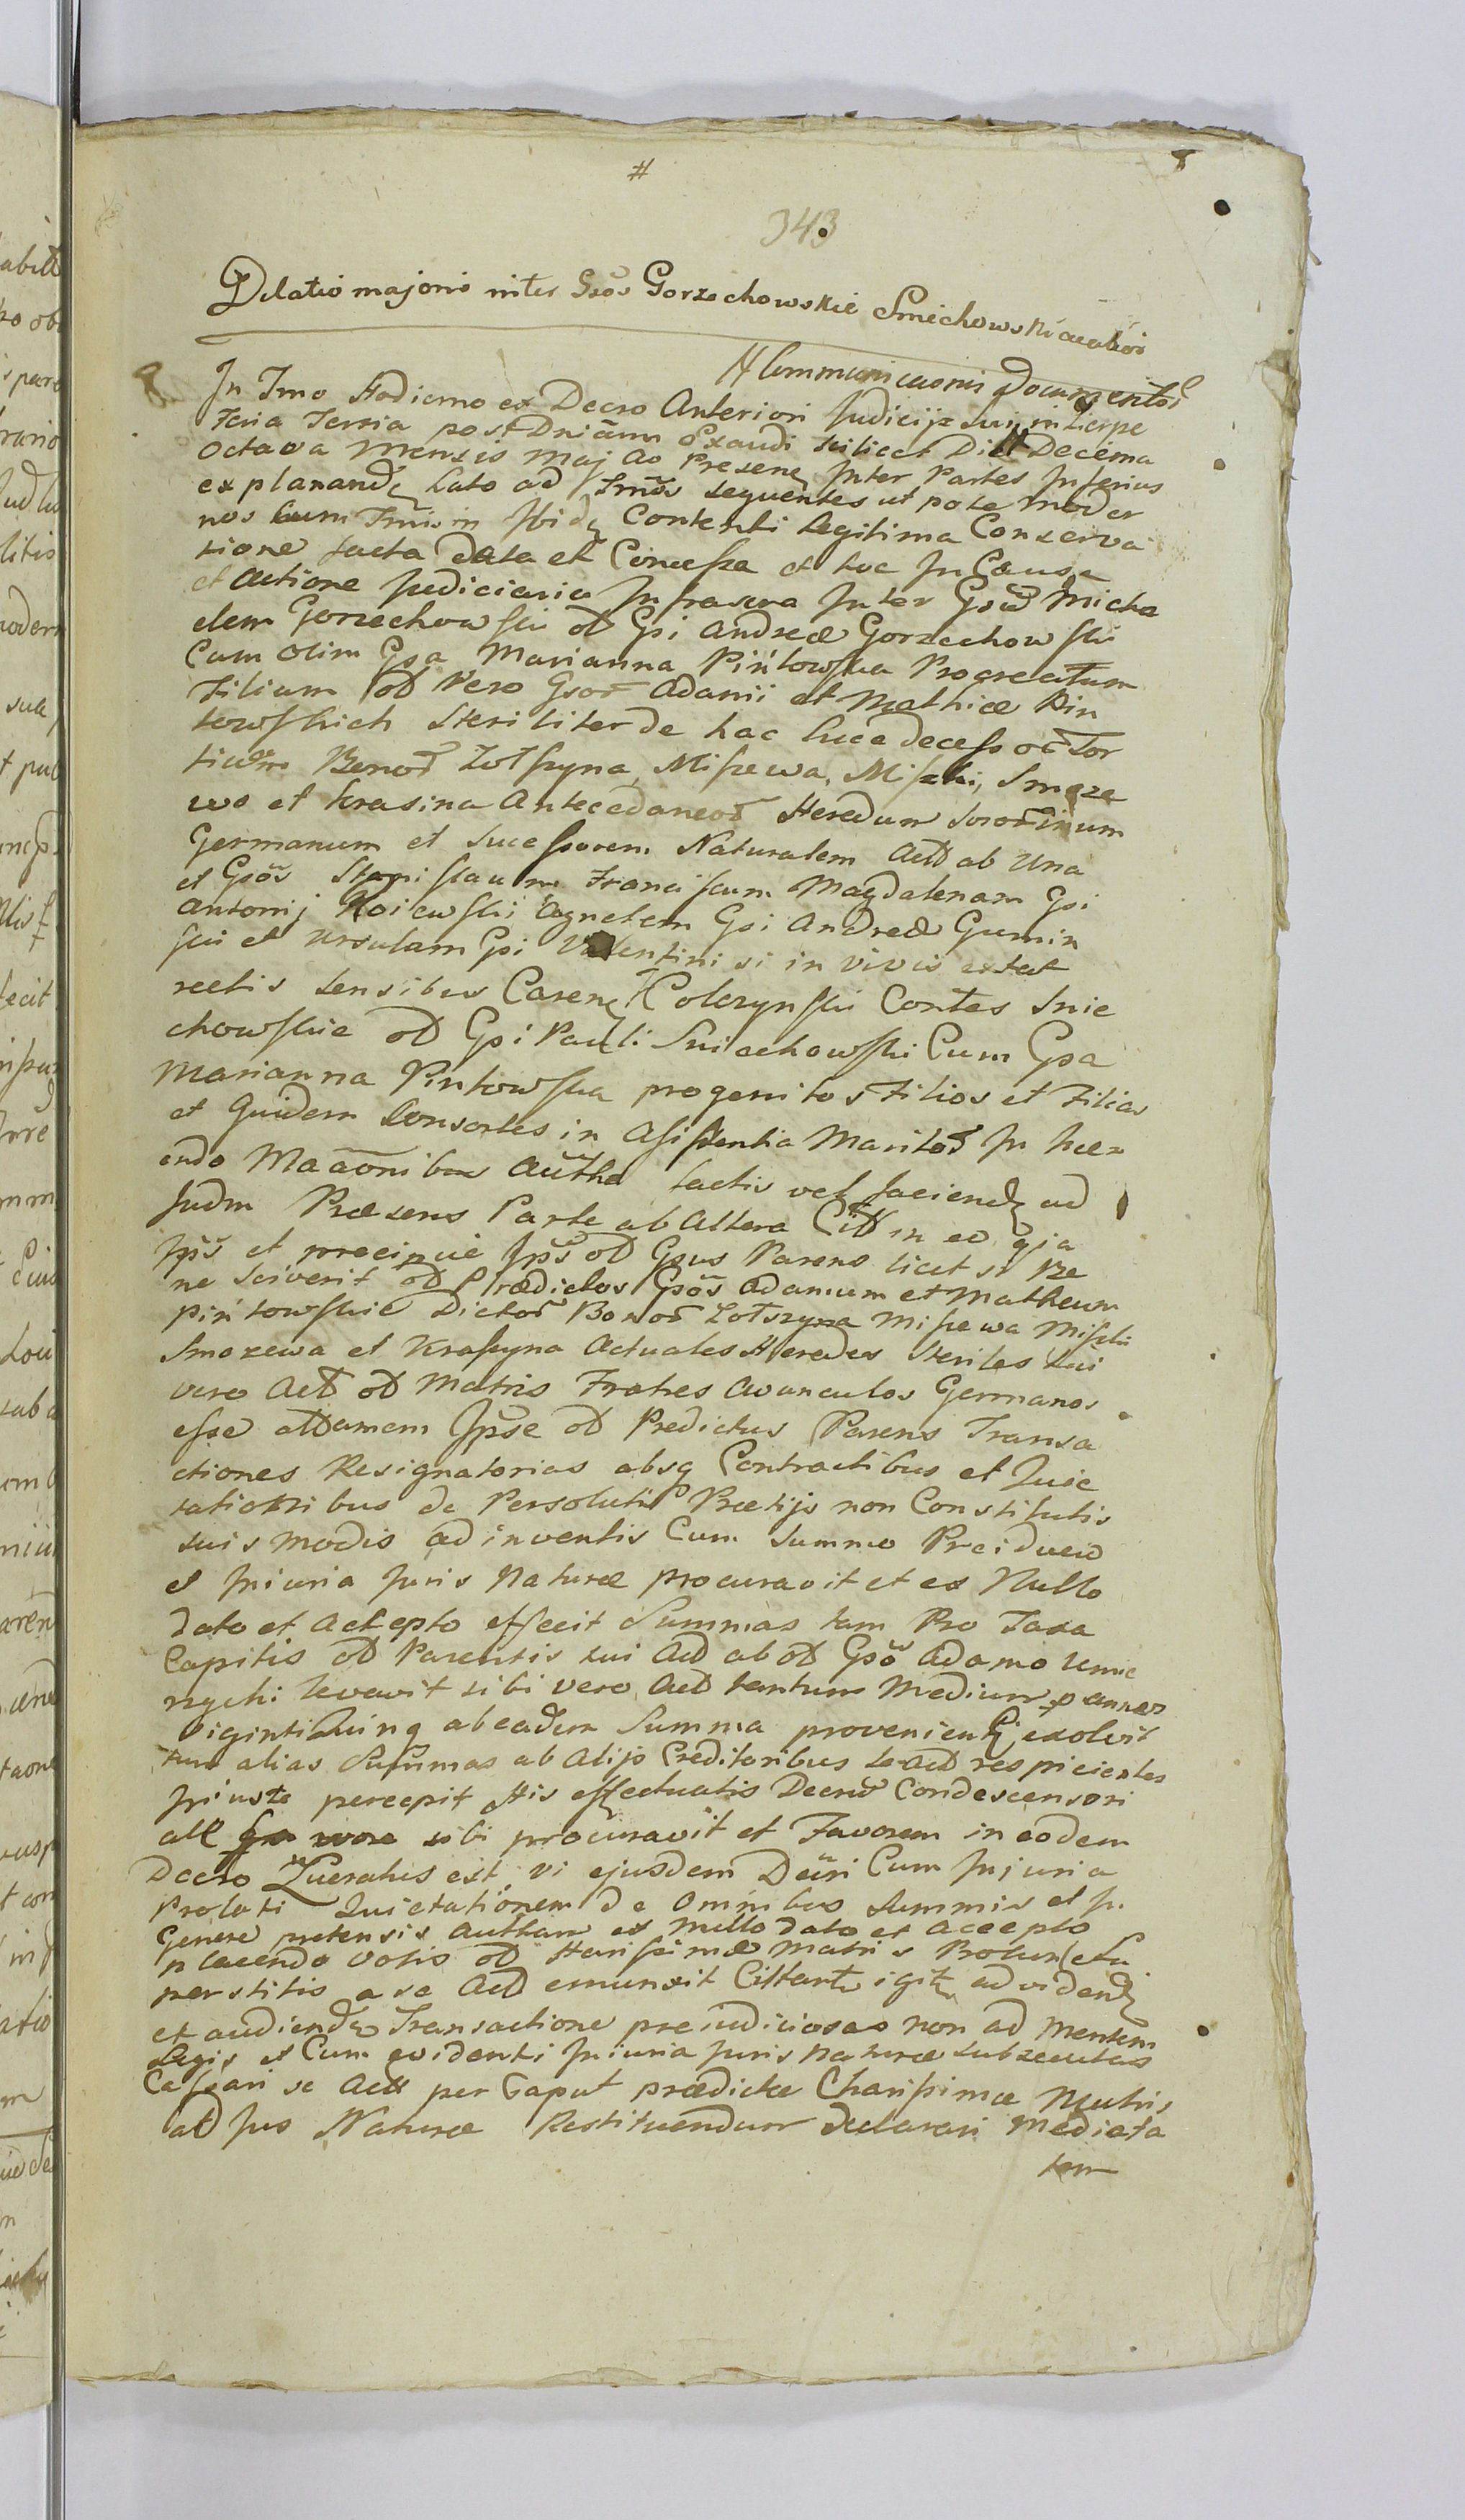 #
8
343
Dilatio majoris inter Gsos Gorzechowskie Smiechowskie
Communicaonis Documentor
8. In Tmo Hodierno ex Decro Anteriori Judicij sui in Sierpc
Feria Tertia post Dnicam Exaudi scilicet Die Decima
Octava Mensis Maj Ao Presen Inter Partes Inferius
explanand Lato ad Tmos sequentes ut pote moder
nos Cum Tmis in Ibid Contenti Legitima Conserva
tione facta data et Concessa et hoc In Causa
et Actione Judiciaria Infrascra Inter Gsum Micha
elem Gorzechowski od Gsi Andreæ Gorzechowski
Cum Olim Gsa Marianna Pińtowska Procreatum
Filium od Vero Gsor Adami et Mathiæ Pin
towskich Steriliter de hac Luce decessor For
tium Bonor Zolszyna, Miszewa, Miszki, Smoze
wo et Krasina Antecedaneor Heredum Sororinum
Germanum et Sucessorem Naturalem Act ab Una
et Gsos Stanislaum Franciscum Magdalenam Gsi
Antonij Agnetem Gsi Andreæ Gumin
ski et Ursulam Gsi Valentini si in vivis extat
rectis sensibus Caren Colczynski Contes Snie
chowskie od Gsi Pauli Sniechowski Cum Gsa
Marianna Pintowska progenitos Filios et Filias
et Quidem Consortes in Assistentia Maritor In
endo Maaonibus Autha factis vel faciend ad
Judm Præsens Parte ab Altera Citt in eo qia
Ipis et precipue Ipse od Gsus Parens licet si Be
ne Sciverit od Prædictos Gsos Adamum et Matheum
Pińtowskie Dictor Bonor Zolszyna Miszewa Miszki
Smozewa et Krassyna Actuales Heredes Steriles sui
vero Act od Matris Fratres Avunculos Germanos
esse attamen Ipse od Predictus Parens Transa
ctiones Resignatorias absq Contractibus et Quie
tationibus de Persolutis Prætijs non Constitutis
suis modis adinventis Cum Summo Preiudicio
et Injuria Juris Naturæ procuravit et ex Nullo
Dato et Accepto effecit Summas tam Pro Taxa
Capitis od Parentis sui Act ab od Gso Adamo
levavit sibi vero Act tantum Medium p annos
viginti Quinq ab eadem Summa provenient exolvit
tum alias Summas ab Alijs Creditoribus se Act respicientes
Injuste percepit His effectuatis Decrum Condescensori
ale sibi procuravit et Favorem in eodem
Decro Lucratus est vi ejusdem Decri Cum Injuria
Prolati Quietationem de Omnibus Summis et in
Genere pretensis Autham ex nullo dato et Accepto
placendo votis od Harissimæ Matris
perstitis a se Act emunxit Cittant igitr ad vidend
et audiend Transactiones preiudiciosas non ad Mentem
Legis et Cum evidenti Iniuria Juris Naturæ subsecutas
Cassari se Act per Caput prædictæ Charissimæ Matris
ad Jus Naturæ Restituendum declarari Medieta
tem